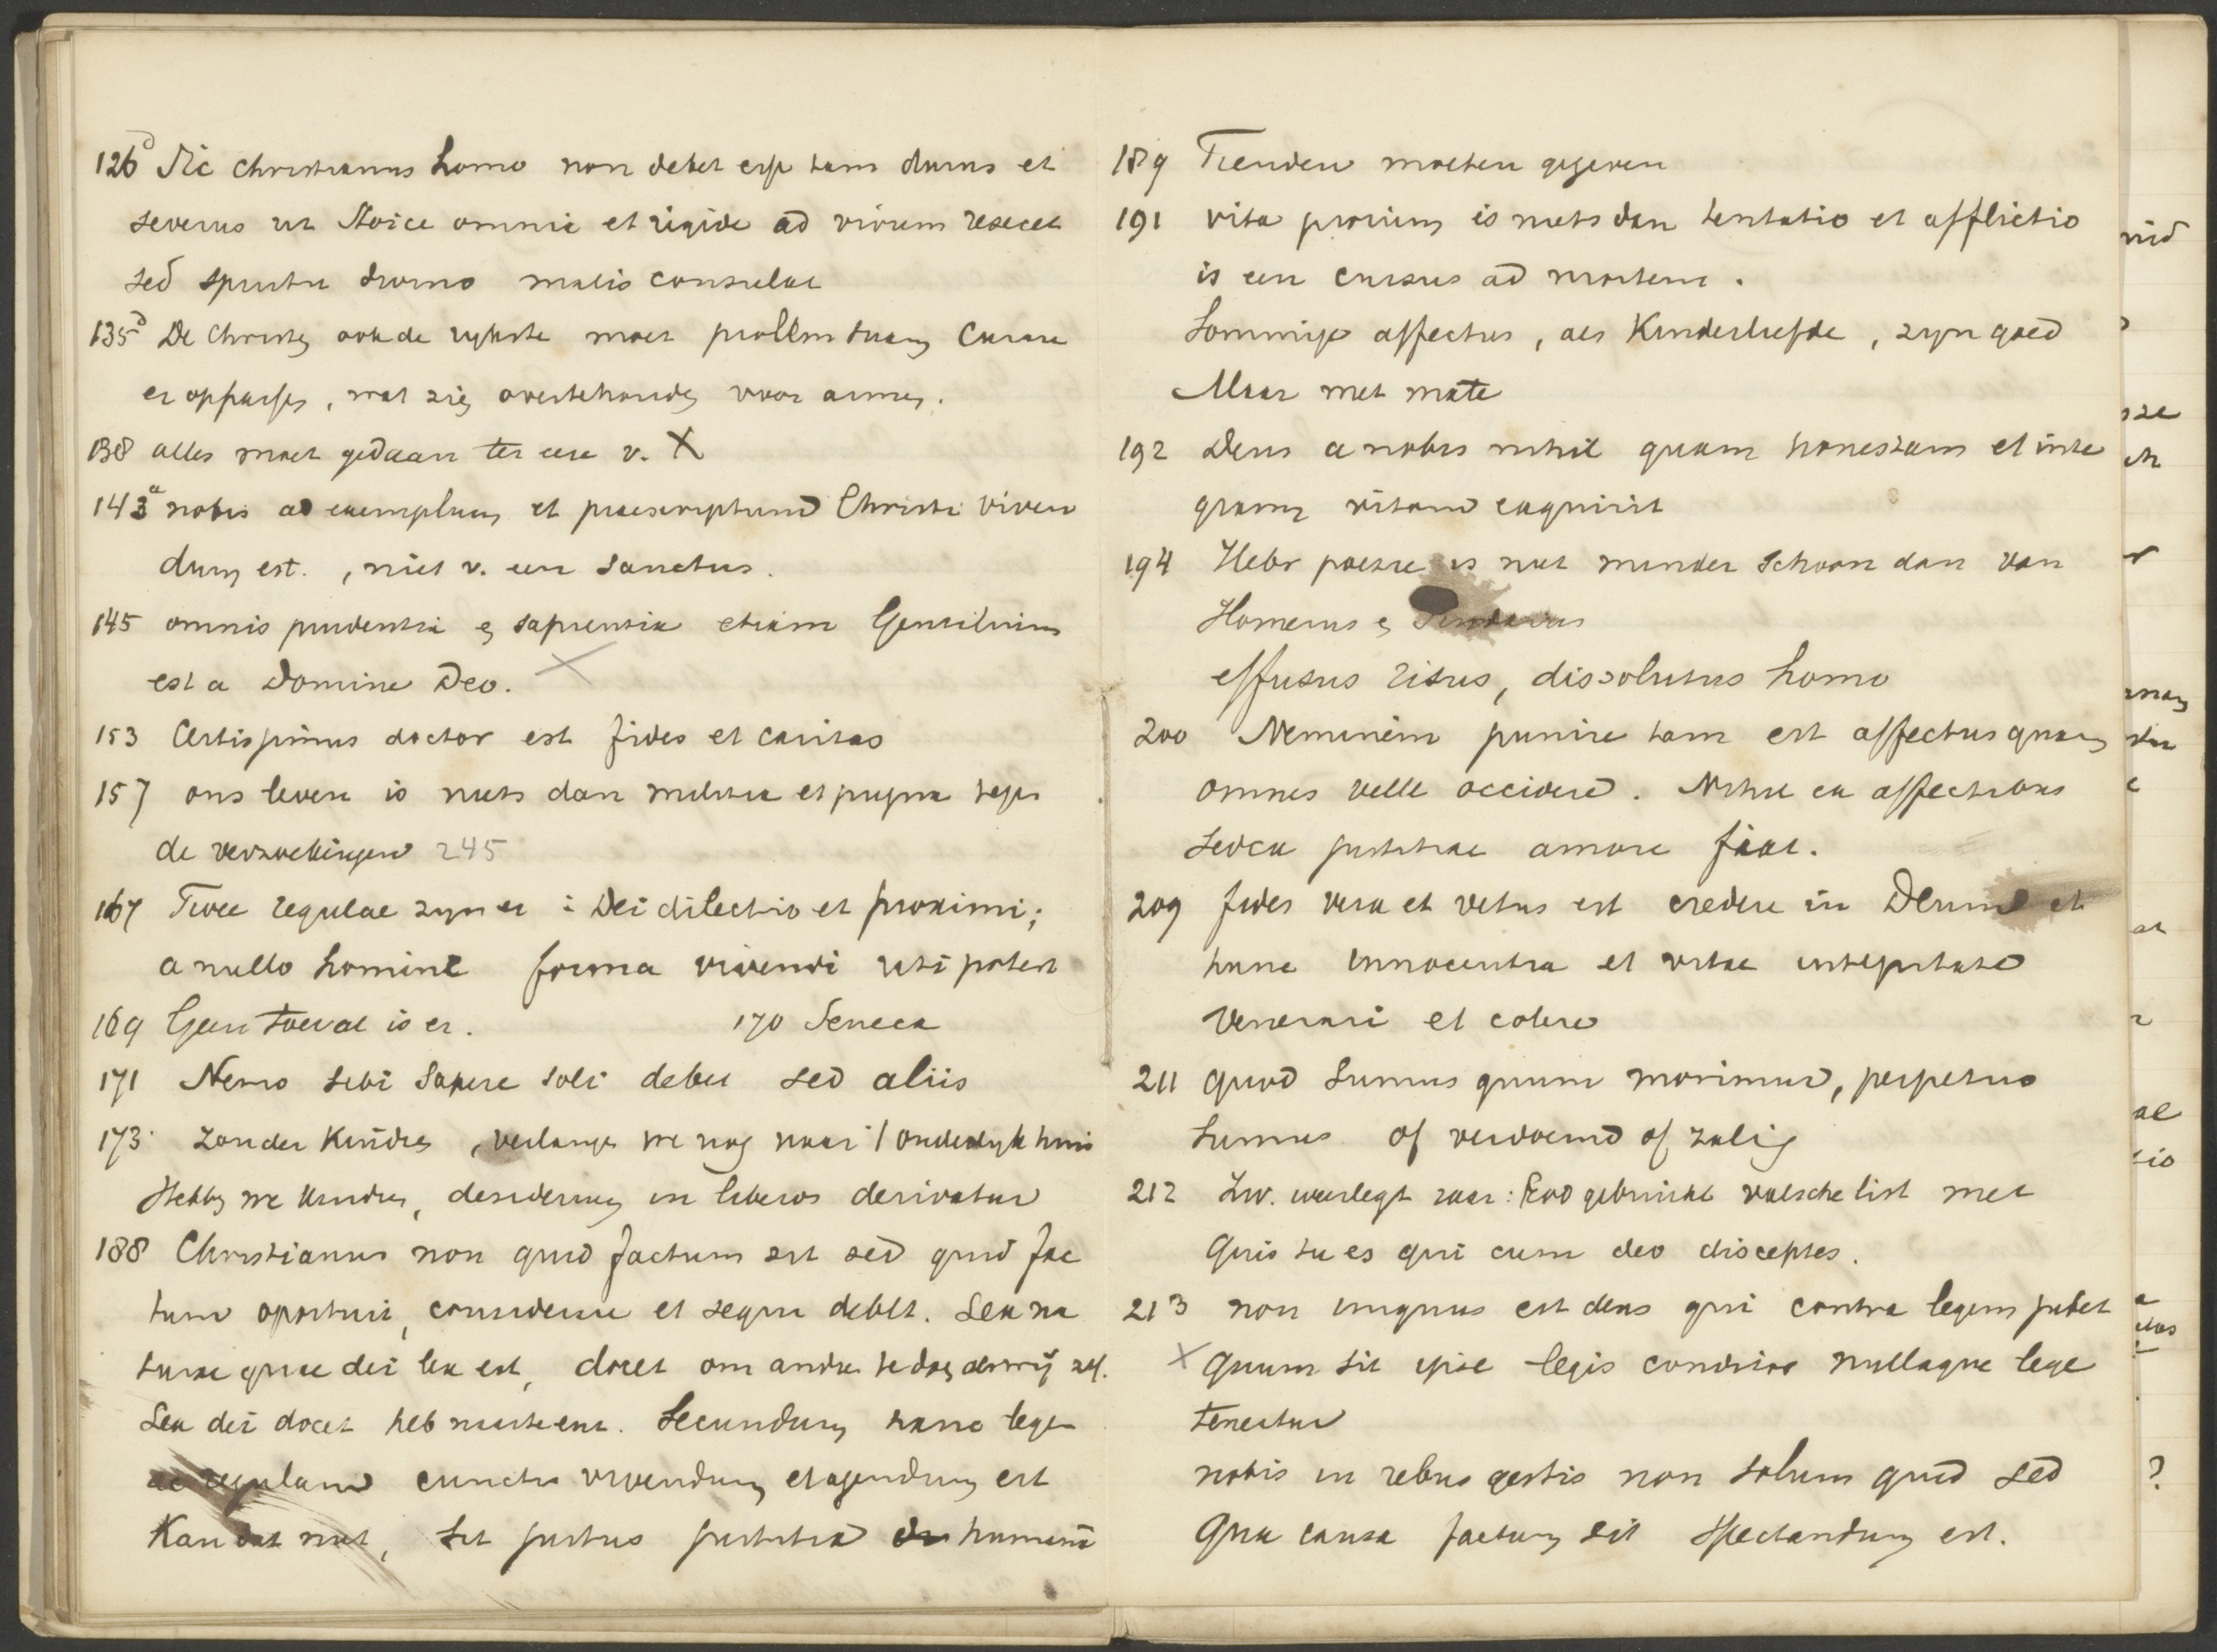 126d Sic Christianus homo non debet esse tam durus et
severus ut Stoice omnia et rigide ad vivum resecet
sed spiritu divino malis consulat
135d De Christen ook de rijkste moet prolem suam curare
er oppassen, wat zich overtehouden voor armen.
138 alles moet gedaan ter eere v. X
143a nobis ad exemplum et praescriptum Christi viven
dum est. , niet v. een Sanctus.
145 omnis prudentia en sapientia etiam Gentilium
est a Domine Deo.
153 Certissimus doctor est fides et caritas
157 ons leven is niets dan militia et pugna tegen
de verzoekingen 245
167 Twee regulae zyn er : Dei dilectio et proximi;
a nullo homine forma vivendi uti potest
169 Geen toeval is er. 170 Seneca
171 Nemo sibi sapere soli debet sed aliis
173 Zonder Kindren, verlangen we nog naar 't ouderlyk huis
Hebben we kindren, desiderium in liberos derivatur
188 Christianus non quid factum sit sed quid fac
tum oportuit, considerare et sequi debet. Lex na
turae quae dei lex est, docet om andren te doen
Lex dei docet heb naasten. Secundum hanc legem
ac regulam cuncta vivendum et agendum est
Kan dat niet, sit justus justitia humana
189 Tienden moeten gegeven
191 vita priorum is niets dan tentatio et afflictio
is een cursus ad mortem.
Sommige affectus, als Kinderliefde, zyn goed
Maar met mate
192 Deus a nobis nihil quam honestam et inte
gram vitam exquirit
194 Hebr poezie is niet minder schoon dan van
Homerus en Pindarus
effusus risus, dissolutus homo
200 Neminem punire tam est affectus quam
omnes velle occidere. Nihil ex affectibus
sed ex justitiae amore fiat.
209 fides vera et vetus est credere in Deum et
hunc innocentia et vitae integritate
venerari et colere
211 quod sumus quum morimur, perpetuo
sumus of verdoemd of zalig
212 Zw. weerlegt : God gebruikt valsche list met
Quis tu es qui cum deo disceptes.
213 non iniquus est deus qui contra legem jubet
X quum sit ipse legis conditor nullaque lege
tenetur
nobis in rebus gestis non solum quid sed
qua causa factum sit spectandum est.